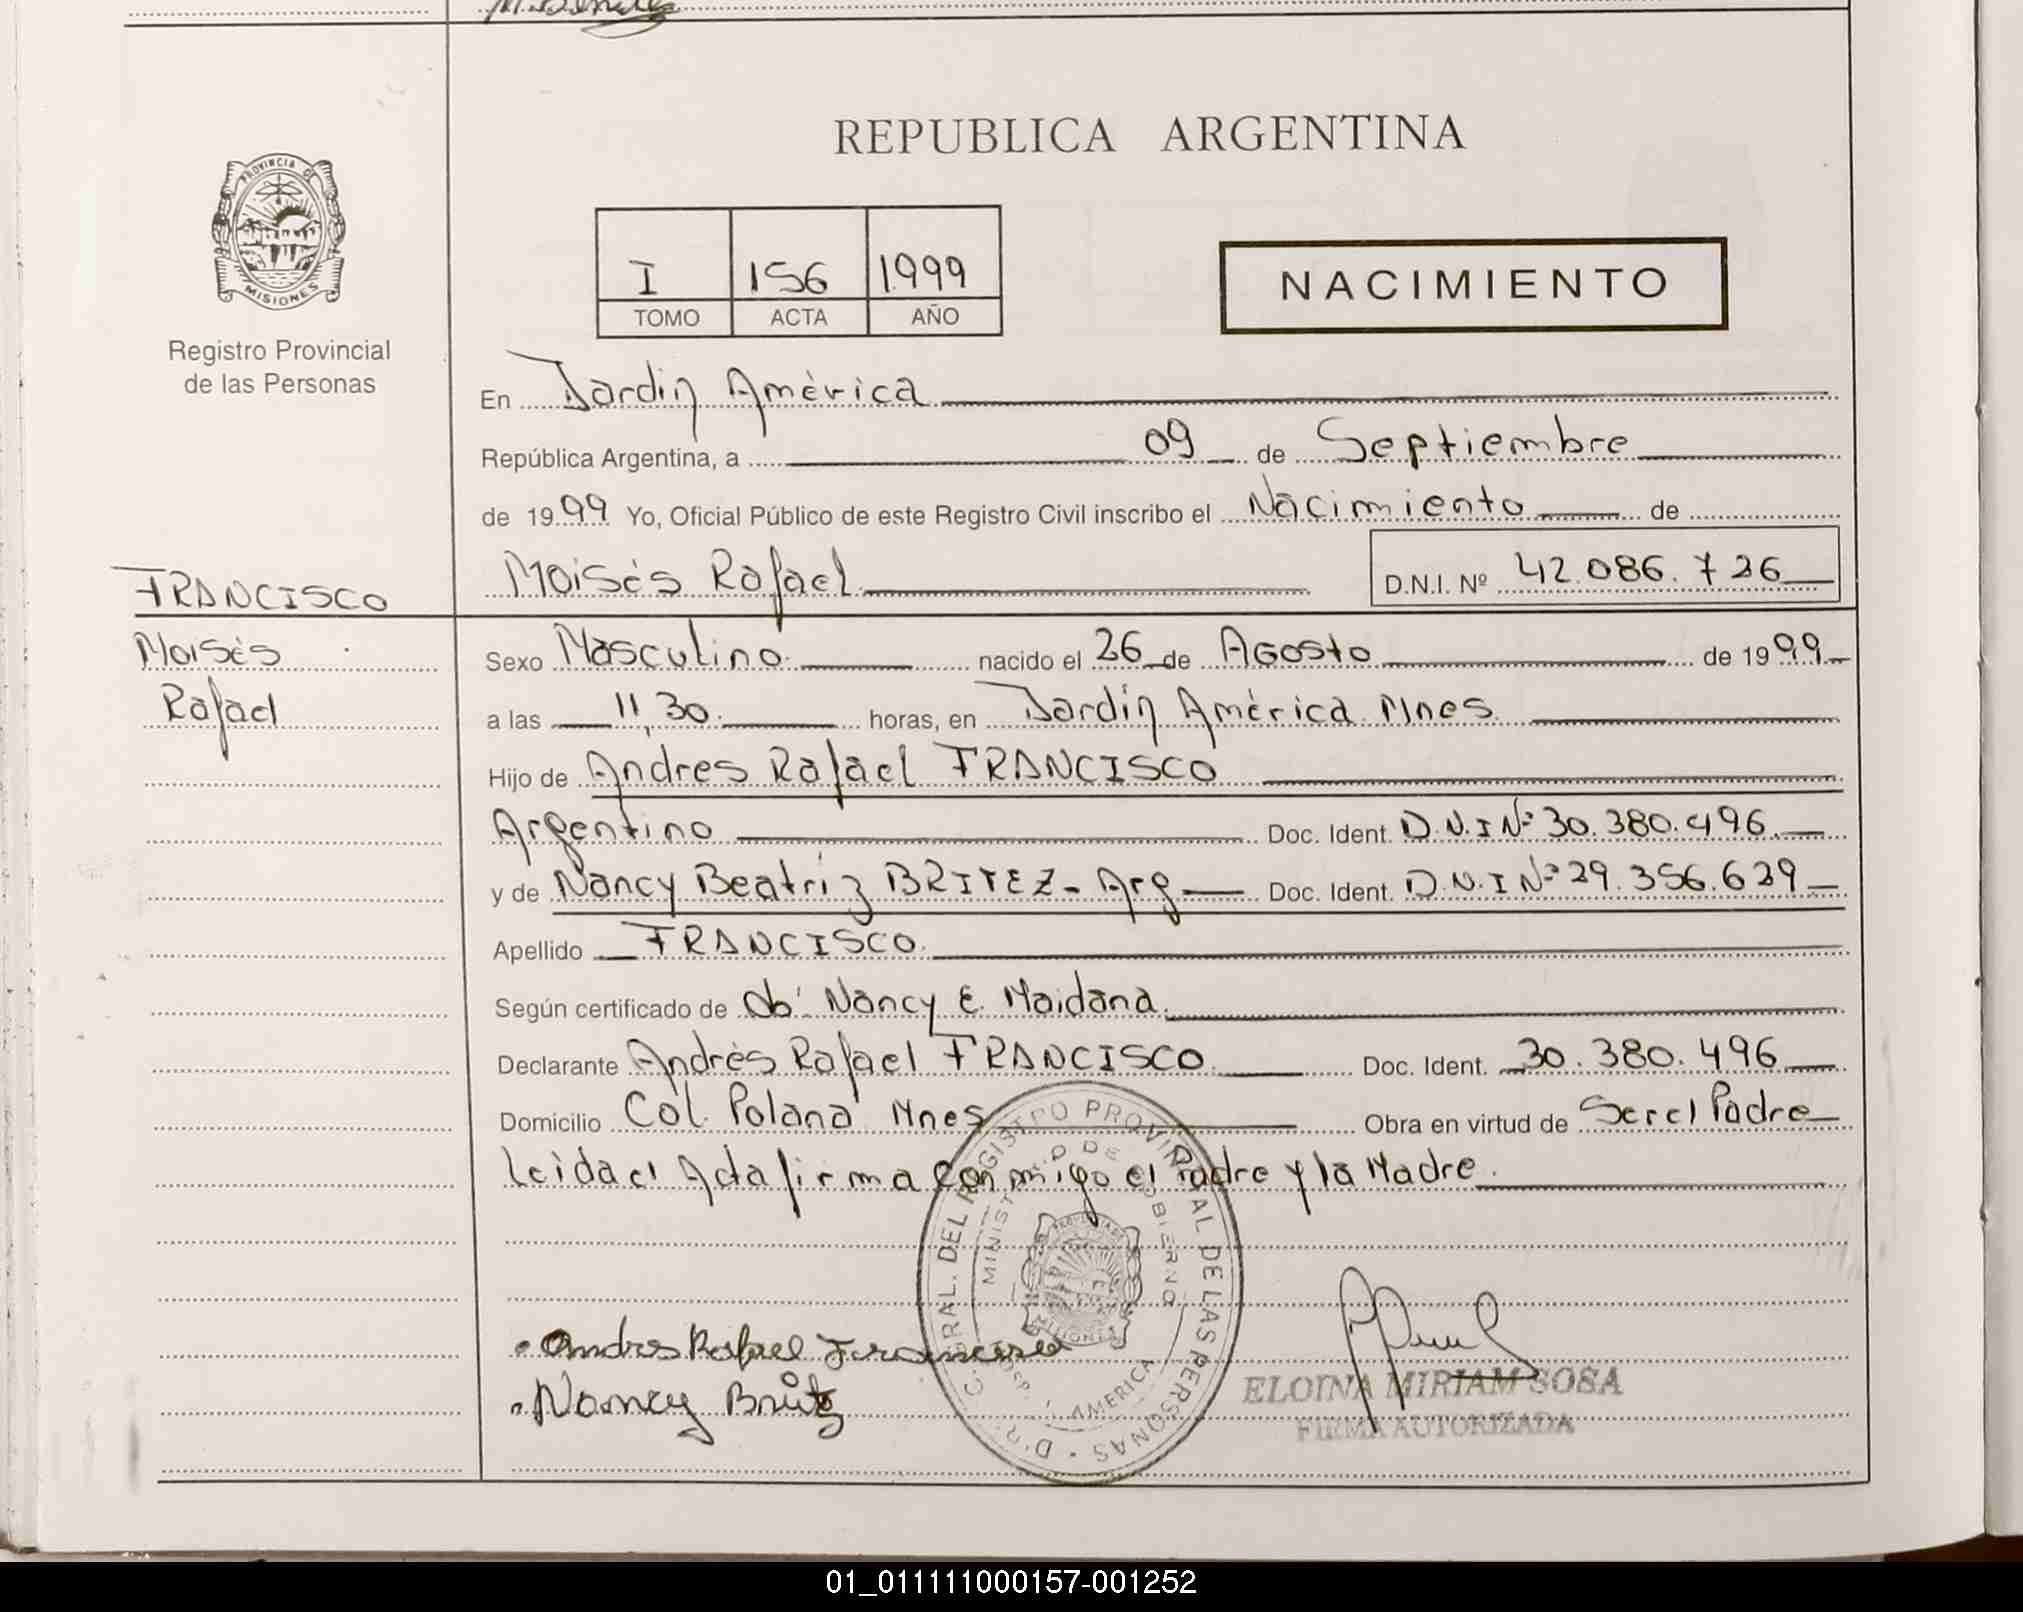 REPUBLICA ARGENTINA
PROVINCIA DE
MISIONES
Registro Provincial
de las Personas
I 156 1999
TOMO ACTA AÑO
NACIMIENTO
En Jardin América
República Argentina, a 09 de Septiembre
de 1999 Yo, Oficial Público de este Registro Civil inscribo el Nacimiento de
Moisés Rafael D.N.I. Nº 42.086.726
FRANCISCO
Moisés
Rafael
Sexo Masculino nacido el 26 de Agosto de 1999
a las 11,30 horas, en Jardín América Mnes
Hijo de Andres Rafael FRANCISCO
Argentino Doc. Ident. D.N.I Nº 30.380.496
y de Nancy Beatriz BRITEZ - Arg Doc. Ident. D.N.I Nº 29.356.629
Apellido FRANCISCO
Según certificado de Ob. Nancy E. Maidana
Declarante Andrés Rafael FRANCISCO Doc. Ident. 30.380.496
Domicilio Col. Polana Mnes Obra en virtud de Ser el Padre
Leida el Acta firma conmigo el Padre y la Madre.
REGISTRO PROVINCIAL DE LAS PERSONAS
MINISTERIO DE GOBIERNO
AMERICA
Andres Rafael Francisco
Nancy Britez
ELOINA MIRIAM SOSA
FIRMA AUTORIZADA
01_011111000157-001252